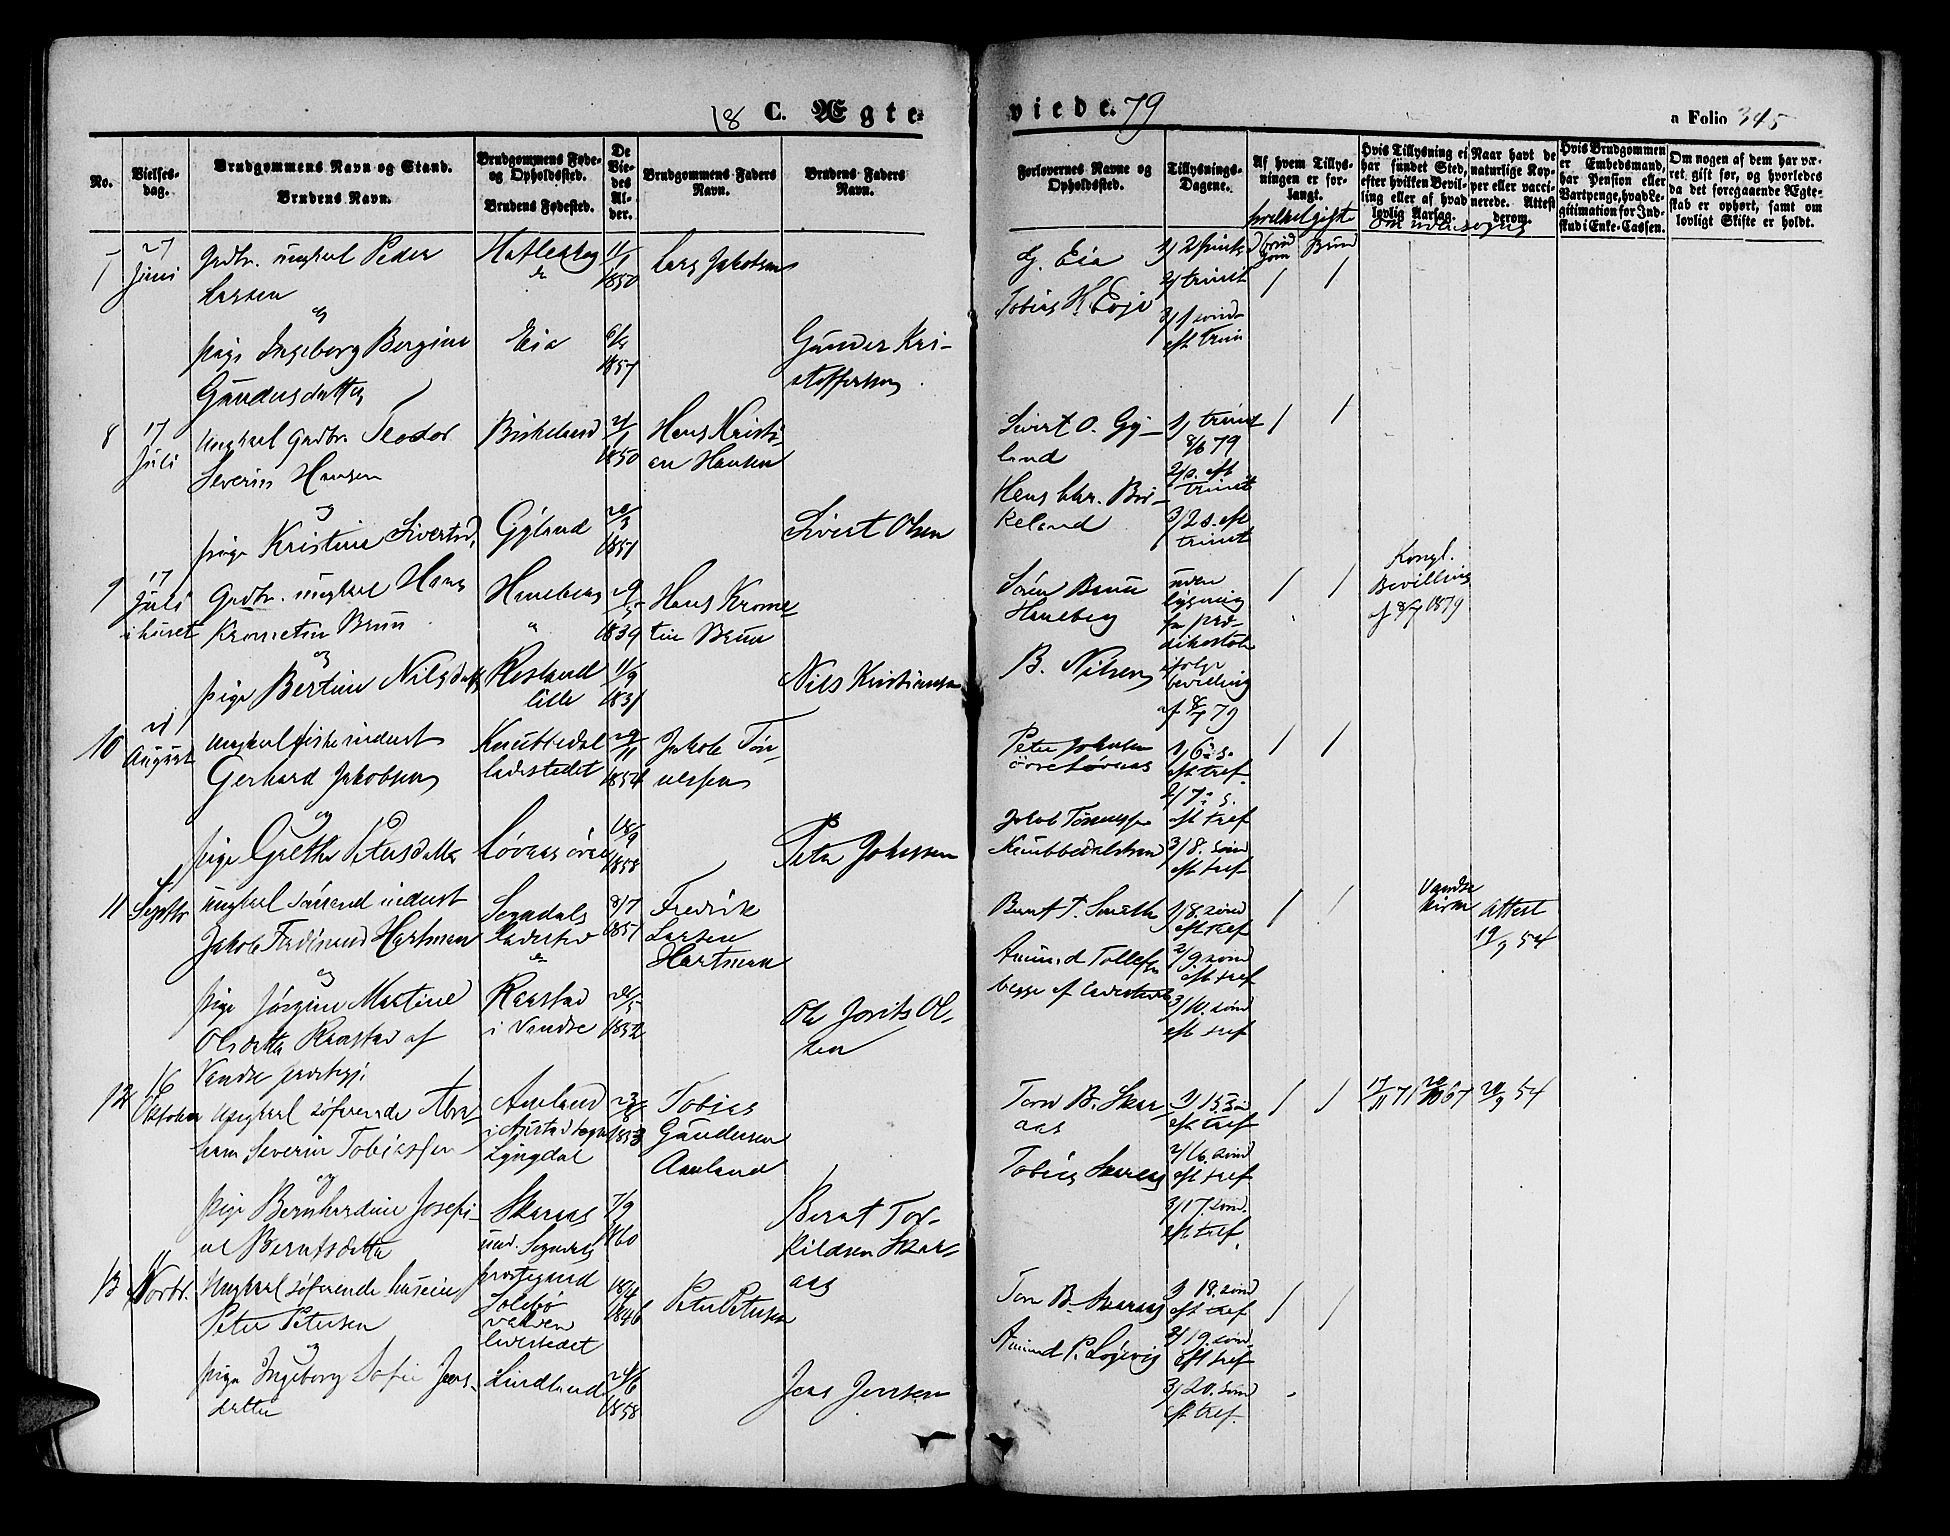 18 C. Ægte=
viede. 79
a Folio 345
No.
Vielses=
dag.
Brudgommens Navn og Stand.
Brudens Navn.
Brudgommens Føde-
og Opholdssted.
Brudens Fødested.
De
Vie-
des
Al-
der.
Brudgommens Faders
Navn.
Brudens Faders
Navn.
Forlovernes Navne og
Opholdssted.
Tillysnings-
Dagene.
Af hvem Tillys-
ningen er for-
langt.
Hvis Tillysning ei
har fundet Sted,
efter hvilken Bevil-
ling eller af hvad
lovlig Aarsag.
Naar havt de
naturlige Kop-
per eller vacci-
nerede. Attest
derom.
Hvis Brudgommen
er Embedsmand,
har Pension eller
Vartpenge, hvad Le-
gitimation for Ind-
skud i Enke-Cassen.
Om nogen af dem har væ-
ret gift før, og hvorledes
da det foregaaende Ægte-
skab er ophørt, samt om
lovligt Skifte er holdt.
7
27
Juni
Grdbr. ungkarl Peder
Larsen
og
pige Ingeborg Bergine
Gundersdatter
Eia
11/1
1850
6/8
1857
Lars Jakobsen
Gunder Kri-
stoffersen
G. Eia
Tobias K. Eeje
2/ trinit
3/ 1 sønd
eft trin
brud
gom
Brud
/ /
8
17
Juli
ungkarl Grdbr. Teodor
Severin Hansen
og
pige Kristine Sivertsd.
Birkeland
Gyland
1850
1851
Hans Kristi-
an Hansen
Sivert Olsen
Sivert O. Gy-
land
Hans Chr. Bir-
keland
1/ trinit
8/6 79
2/ s. eft
trinit
3/ 2 s. eft
trinit
/ /
9
17
Juli
i huset
Grdbr. ungkarl Hans
Krometin Brun
og
pige Bertine Nilsdatt
Haneberg
Resland
lille
1839
11/9
1831
Hans Krome-
tin Brun
Nils Kristiansen
Søren Brun
Haneberg
B. Nilsen
uden
lysning
fra præ-
dikestol
ifølge
bevilling
af 8/7 79
/ /
Kongl.
Bevilling
af 8/7 1879
10
21
August
ungkarl fiskeindust
Gerhard Jakobsen
og
pige Grethe Petersdatter
Knubbedal
ladestedet
Løvaas øvre
29/11
1854
18/9
1858
Jakob Tøn-
nessen
Peter Johnsen
Peter Johnsen
øvre Løvaas
Jakob Tønnessen
Knubbedalstrand
1/ 6 s.
eft tref
2/ 7 s.
eft tref
3/ 8. sønd
eft tref
/ /
11
4
Septbr
ungkarl
Jakob Ferdinand Hartman
og
pige Jørgine Martine
Olsdatter Raastad af
Vandse prestegj.
Sogndals
ladested
Raastad
i Vandse
8/7
1851
1852
Fredrik
Larsen
Hartman
Ole Jorits Ol-
sen
Bernt T. Smith
Amund Tollefsen
begge af ladestedet
1/ 8. sønd
eft tref
2/ 9. sønd
eft tref
3/ 10. sønd
eft tref
/ /
Vandse
kirke
Attest
19/9 54
12
16
Oktober
ungkarl søfarende Abra-
ham Severin Tobiassen
og
pige Bernhardine Josefi-
ne Berntsdatter
Aneland
Lyngdal
Skaraas
1853
7/9
1860
Tobias
Gundersen
Aaneland
Bernt Tor-
kildsen Skar-
aas
Torn B. Skar-
aas
Tobias Skaraas
1/ 15 sønd
eft tref
2/ 16. sønd
eft tref
3/ 17. sønd.
eft tref
/ /
17/11 71
20/9 54
13
11
Novbr.
Ungkarl søfarende
Peter Petersen
og
pige Ingeborg Sofie Jens-
datter
ladestedet
Lindland
18/4
1846
24/6
1858
Peter Petersen
Jens Jensen
Torn B. Skaraas
Amund P. Løgevig
1/ 18. sønd
eft tref
2/ 19. sønd.
eft tref
3/ 20. sønd
eft tref.
/ /